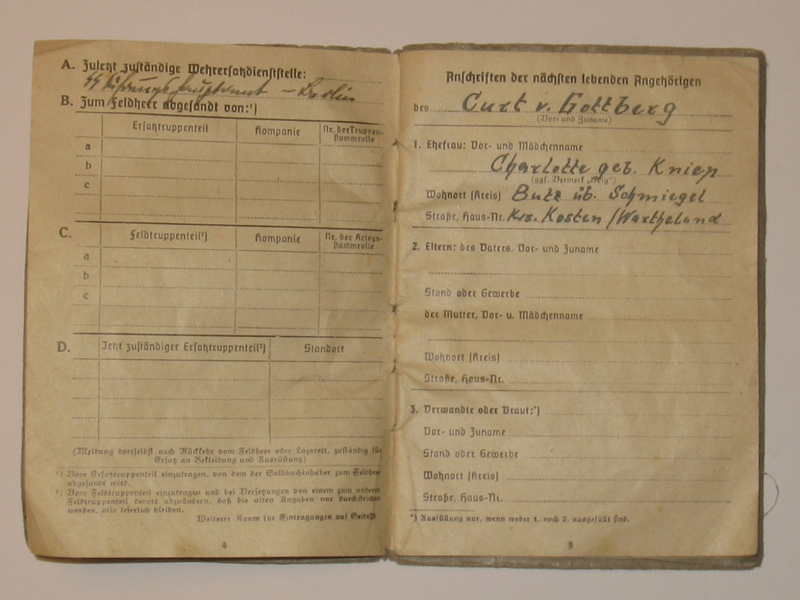 A. Zuletzt zuständige Wehrersatzdienststelle:
SS Führungshauptamt – Berlin
B. Zum Feldheer abgesandt von:¹)
Ersatztruppenteil Kompanie Nr. der Truppen-
stammrolle
a
b
c
C. Feldtruppenteil²) Kompanie Nr. der Kriegs-
stammrolle
a
b
c
D. Jetzt zuständiger Ersatztruppenteil¹) Standort
(Meldung dortselbst nach Rückkehr vom Feldheer oder Lazarett, zuständig für
Ersatz an Bekleidung und Ausrüstung)
¹) Vom Ersatztruppenteil einzutragen, von dem der Soldbuchinhaber zum Feldheer
abgesandt wird.
²) Vom Feldtruppenteil einzutragen und bei Versetzungen von einem zum anderen
Feldtruppenteil derart abzuändern, daß die alten Angaben nur durchstrichen
werden, also leserlich bleiben.
Weiterer Raum für Eintragungen auf Seite
4
Anschriften der nächsten lebenden Angehörigen
des Curt v. Gottberg
(Vor- und Zuname)
1. Ehefrau: Vor- und Mädchenname
Charlotte geb. Kniep
(ggf. Vermerk „ledig")
Wohnort (Kreis) Butz üb. Schmiegel
Straße, Haus-Nr. Krs. Kosten / Wartheland
2. Eltern: des Vaters, Vor- und Zuname
Stand oder Gewerbe
der Mutter, Vor- u. Mädchenname
Wohnort (Kreis)
Straße, Haus-Nr.
3. Verwandte oder Braut:*)
Vor- und Zuname
Stand oder Gewerbe
Wohnort (Kreis)
Straße, Haus-Nr.
*) Ausfüllung nur, wenn weder 1. noch 2. ausgefüllt sind.
5